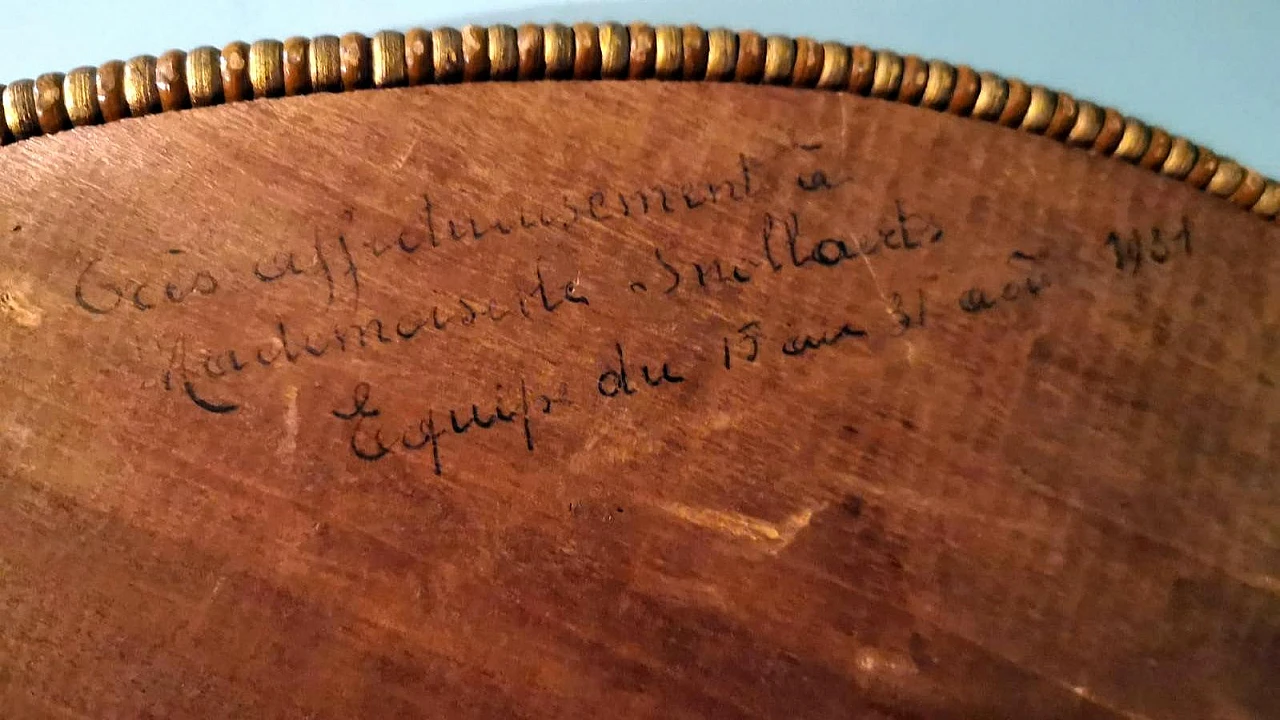 Très affectueusement à
Mademoiselle Snollaerts
Equipe du 15 au 31 août 1931